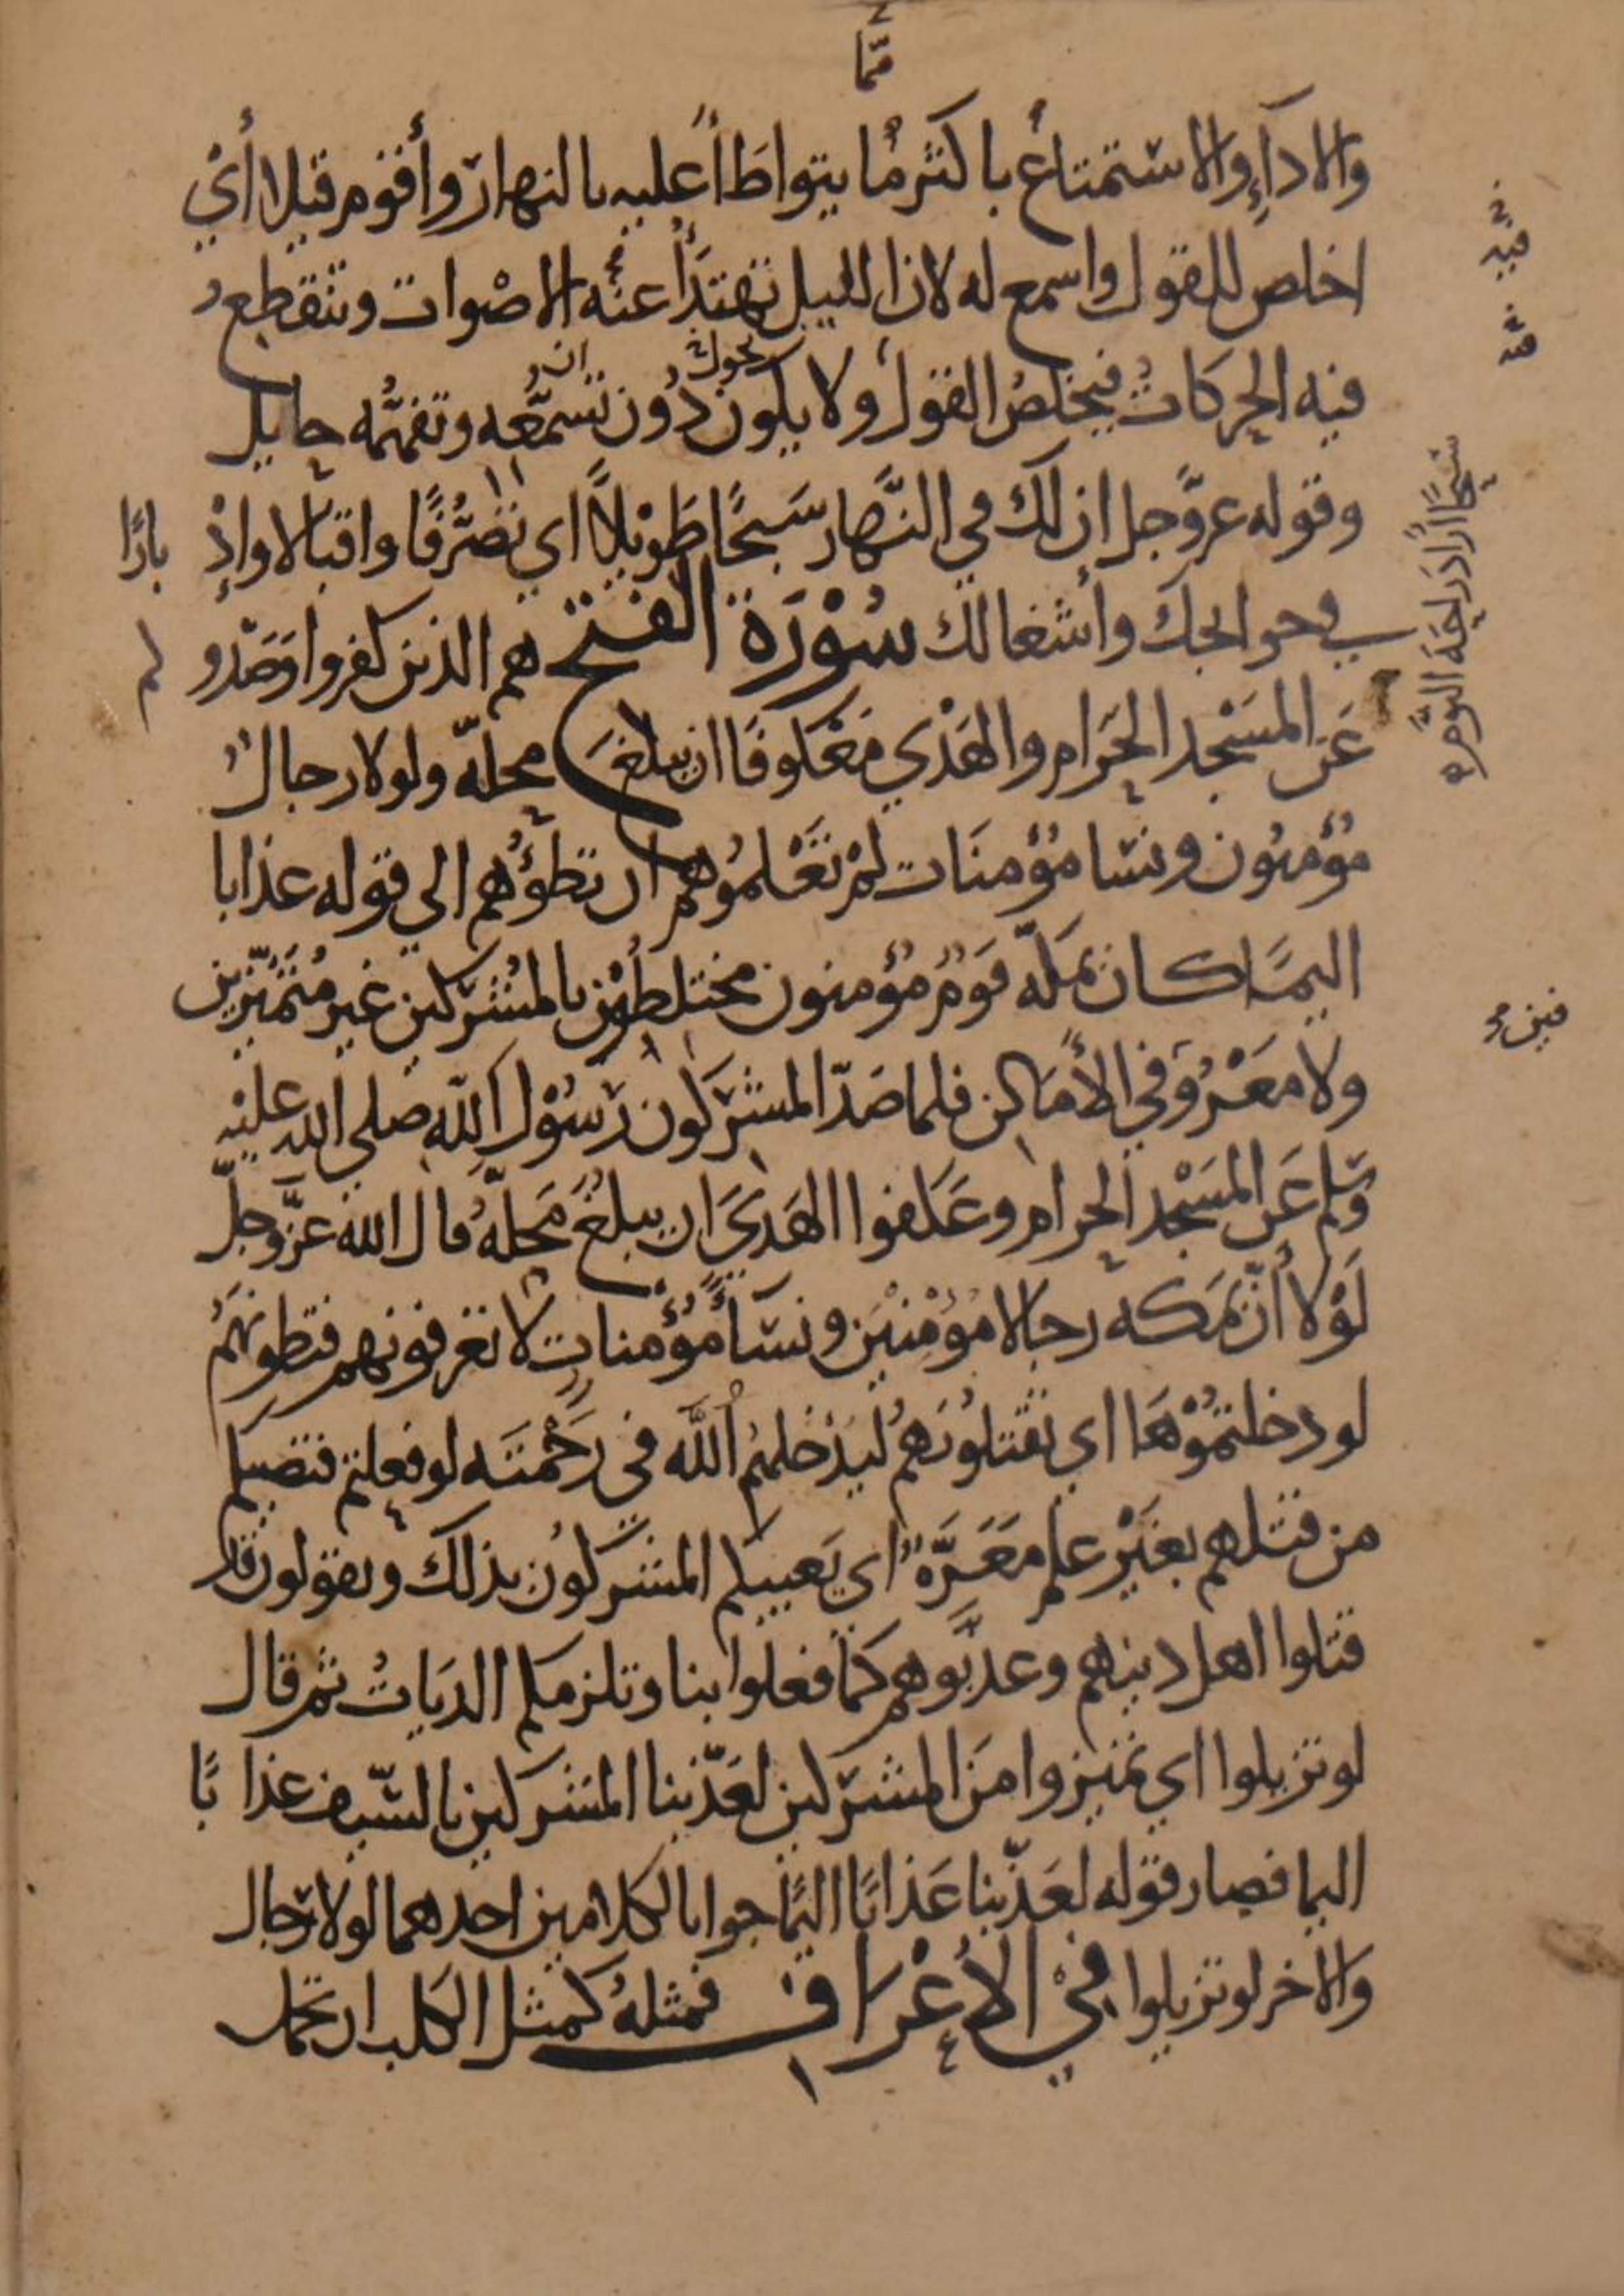 ممّا
والاداءِ والاستمتاع باكثر ما يتواطأ عليه بالنهار وأقوم قيلا أي
اخلص للقول واسمع له لان الليل تهتدأ عنه الاصوات وتنقطع
فيه
فيه
فيه الحركات فيخلص القول ولا يكون دون تسمّعه وتفهّمه حايل
تحول
ان
وقوله عزّ وجل ان لك في النّهار سَبحًا طَويلاً اي تصَرُّفًا واقبالا واد
بارًا
في حوايجك وأشغالك سُوْرَة الفتح هم الذين كفروا وَصَدو
كم
سَبحًا أرادَ راحَة النوم
عَن المسَجد الحَرام والهَدْي مَعْكوفًا ان يبلغَ محلّه ولولا رجالٌ
مُؤمنُون ونسَا مُؤمنَات لمْ تَعْلمُوهم ان تطؤُهم الي قوله عذابا
اليمًا كان بمَكّه قَومٌ مُؤمنون مختلطُين بالمُشركين غير مُتَمَيّزين
ولا معَرُوفي الأمَاكن فلما صَدّ المشركون رَسُوْل اللّه صلي الله عليْه
فين
وسّلم عَن المسَجْد الحرام وعَكفوا الهَديَ ان يبلغَ مَحلّهُ قال الله عزّ وجلّ
لَوْلا أنّ بمَكه رجالا مُؤْمنيْن ونسَاءً مُؤمنات لا تعرفونهم فتطونهَمُ
لو دخلتمُوْهَا اي تقتلُونَهُم ليُدْخلهمُ اللَّه في رَحْمتَه لو فعلتم فتصيبكم
من قتلهم بغيَرْ علم مَعَرَّةٌ اي يَعيبكم المشركوُن بذلك ويقولون قد
قتلوا اهل دينهم وعدّبوهم كمَا فعلوا بنا وتلزمكم الديَاتُ ثم قال
لو تزيلوا اي تميزوا منَ المشرَكين لعَذّبنا المشركين بالسّيف عذابًا
اليما فصار قوله لعَذّبنا عَذابًا اليمًا جوابا لكلامين احدهما لولا رجال
والاخر لو تزيلوا في الأعْراف فمثلهُ كمثل الكلب ان تحمل